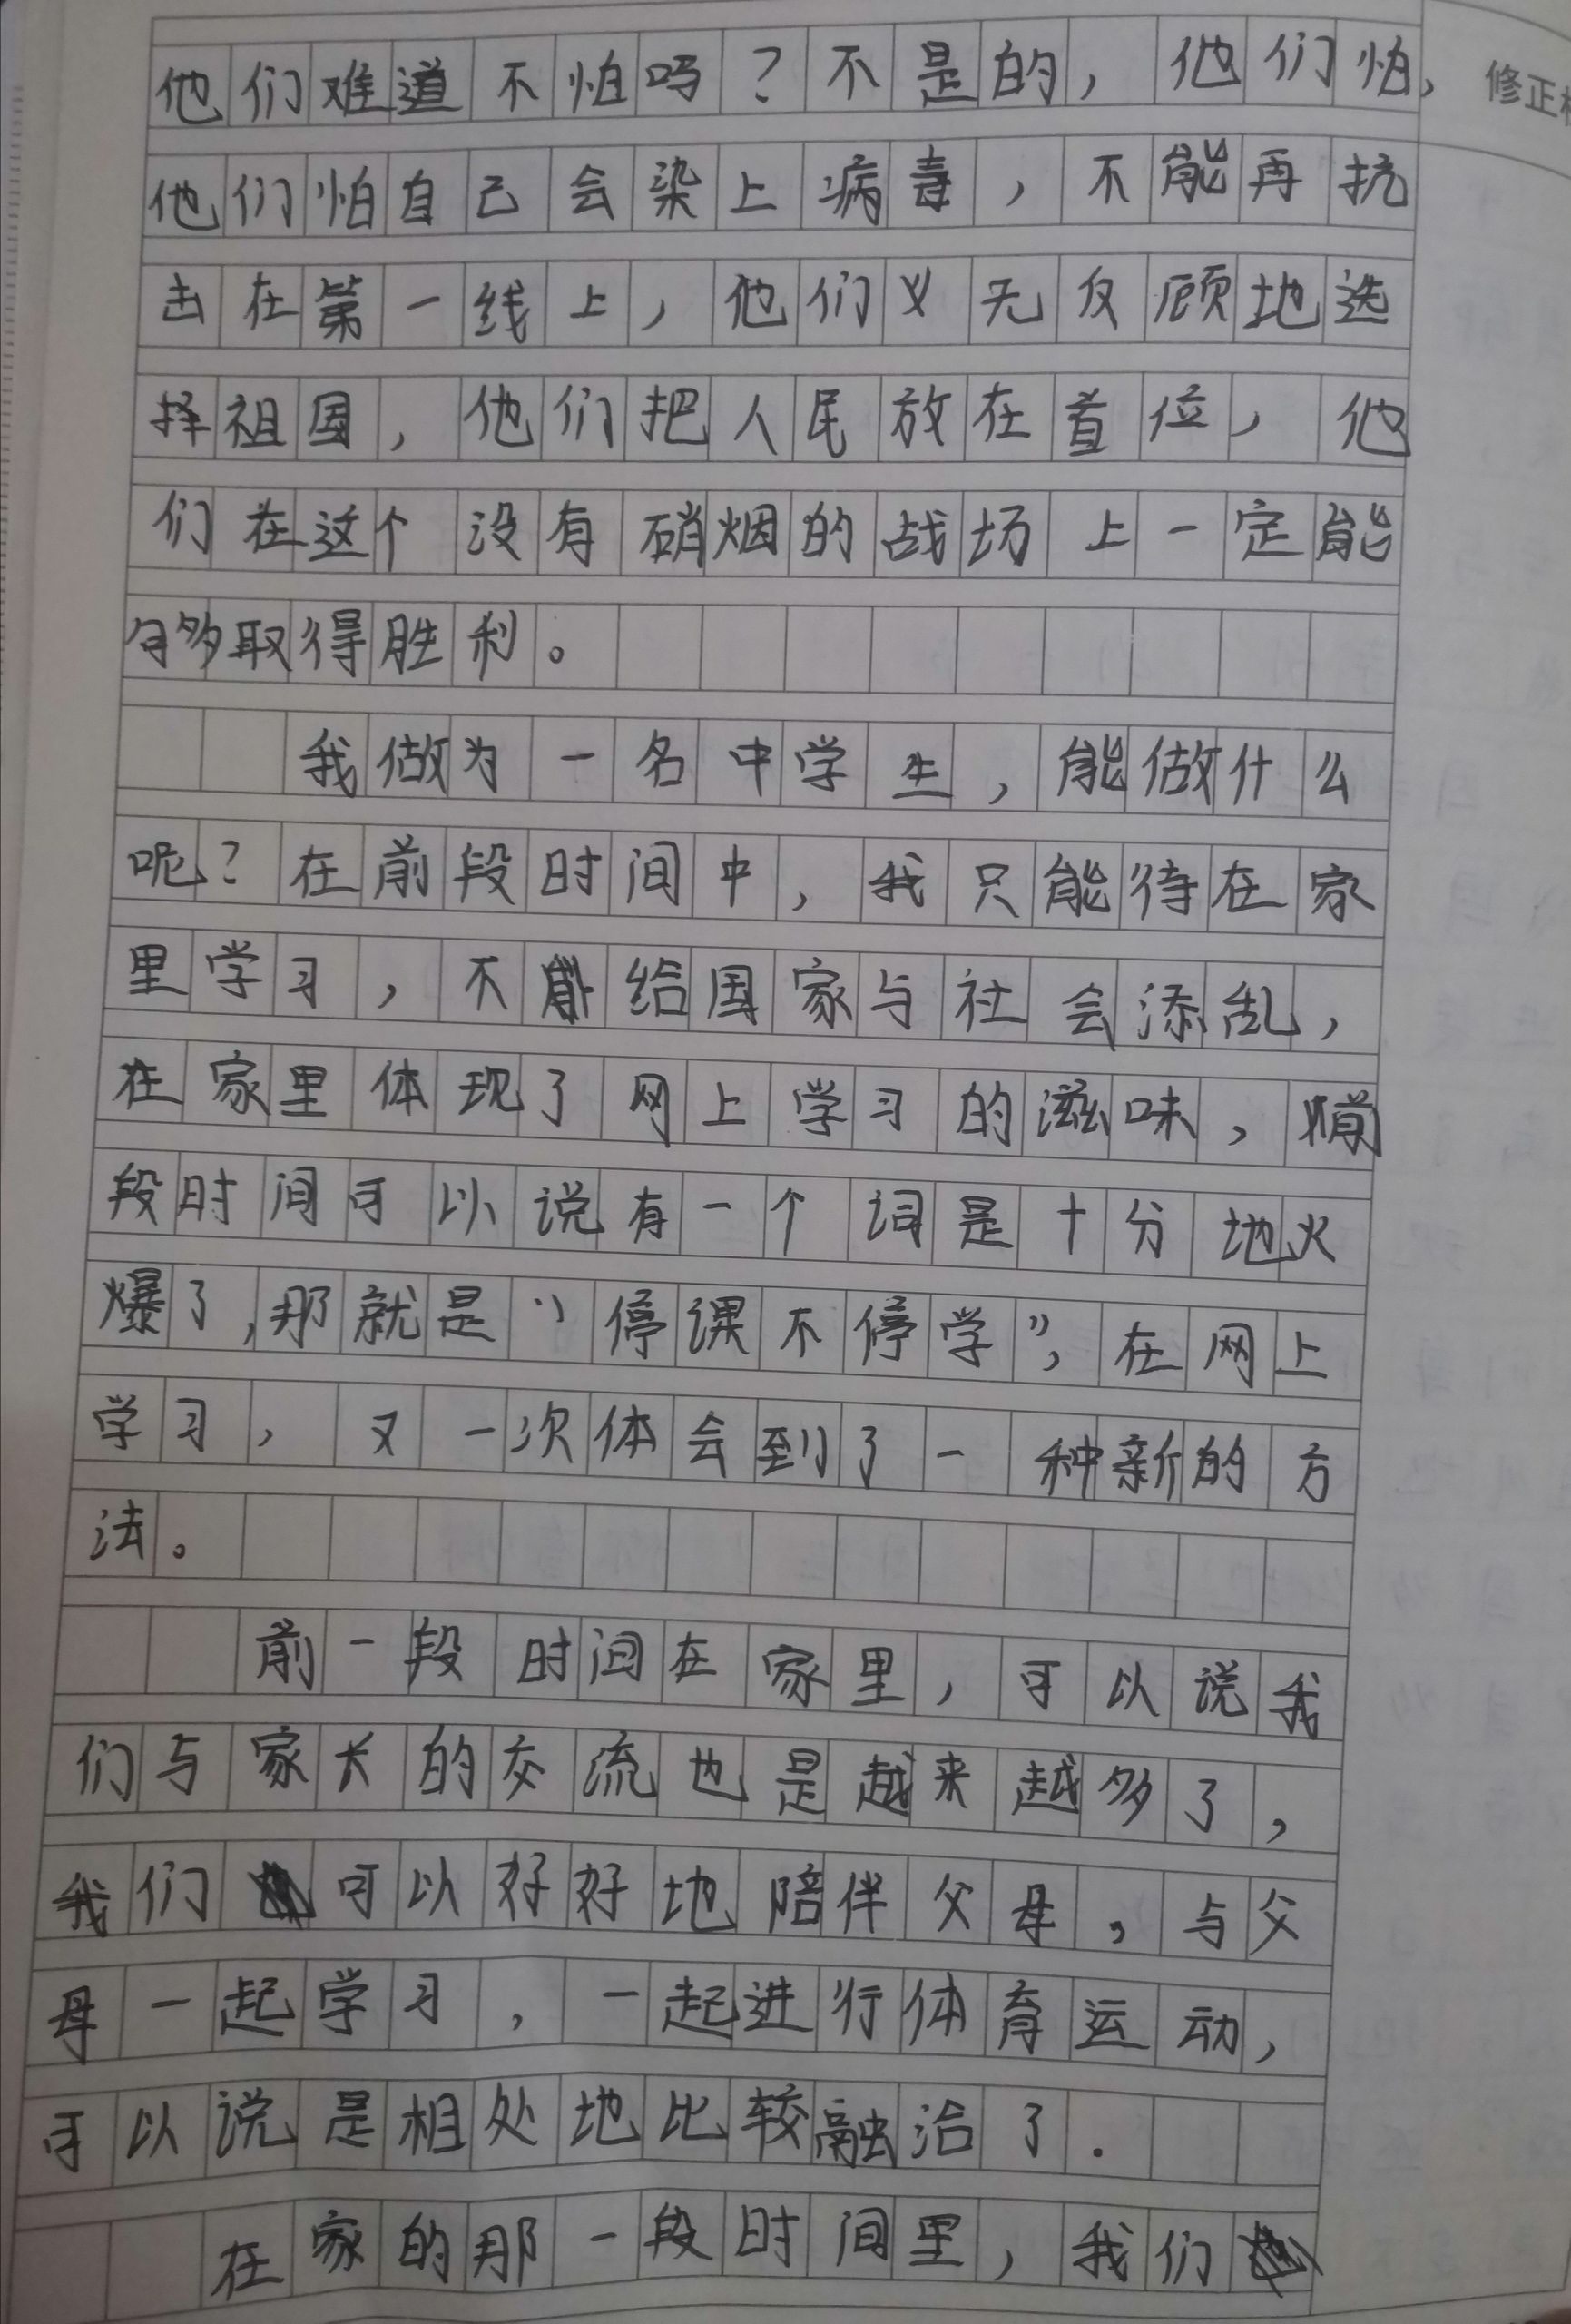 他们难道不怕吗？不是的，他们怕，
修正
他们怕自己会染上病毒，不能再抗
击在第一线上，他们义无反顾地选
择祖国，他们把人民放在首位，他
们在这个没有硝烟的战场上一定能
够取得胜利。
我做为一名中学生，能做什么
呢？在前段时间中，我只能待在家
里学习，不能给国家与社会添乱，
在家里体现了网上学习的滋味，前
段时间可以说有一个词是十分地火
爆了，那就是“停课不停学”，在网上
学习，又一次体会到了一种新的方
法。
前一段时间在家里，可以说我
们与家长的交流也是越来越多了，
我们可以好好地陪伴父母，与父
母一起学习，一起进行体育运动，
可以说是相处地比较融洽了.
在家的那一段时间里，我们